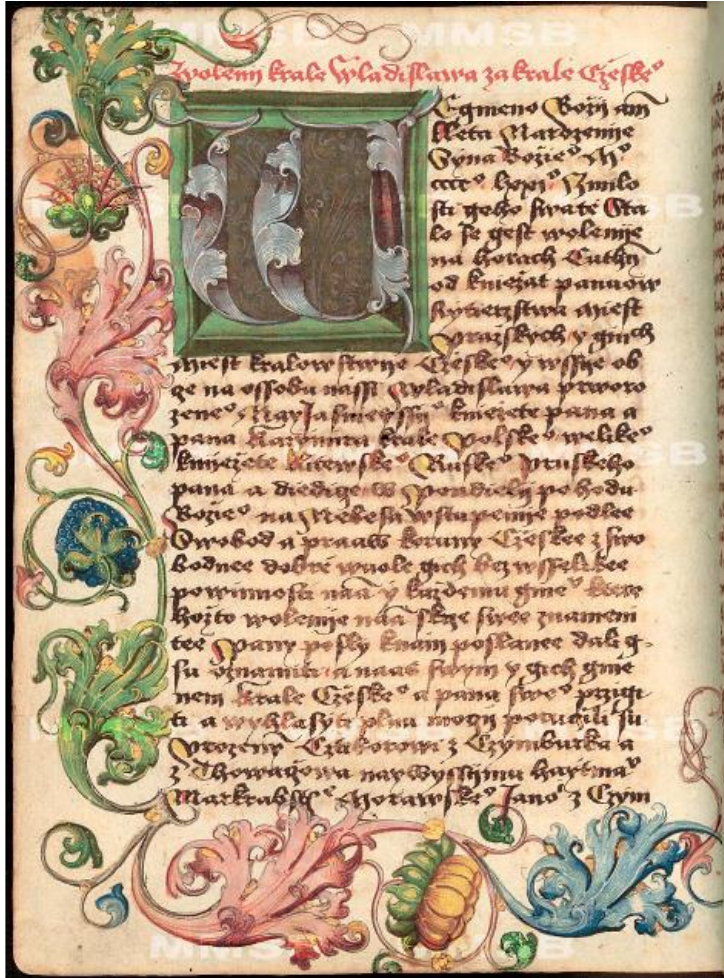 Zwolenij krale Wladislawa za krale Czeskeº
W Egmeno Božij am̄
Lleta Narozenije
Syna Božieº Mº
ccccº lxxiº Zmilo
sti geho swate Sta
lo se gest wolenije
na Horach Cuthn̄
od kniežat panuow
Rytierzstwa Miest
Pražskych y ginich
Miest kralowstwije Czeskeº y wssije ob
ge na ossobu nassi Wladislawa prworo
zeneº Nayjasnieyssiº kniežete pana a
pana Kazymira krale Polskeº welikeº
kniežete Litewskeº Ruskeº Pruskeho
pana a diedice W Pondielij po hodu
Božieº na Nebesa wstupenije podlee
Swobod a praaw koruny Czeskee z swo
bodnee dobré wuole gich bez wsselikee
powinnosti naā y každemu gineº ktere
hožto wolenije naā skrze swee znameni
tee Pany posly knām poslanee dali g-
su oznamiti a naas swym y gich gme
nem krale Czeskeº a pana sweº przigi-
ti a wyhlasyti plnu moczij poruczili su
Urozeny Cztiborowi z Czymburka a
z Thowaczowa nayWyssijmu haytmaº
Markrabstº Morawskeº Janoº z Czym
MMSB